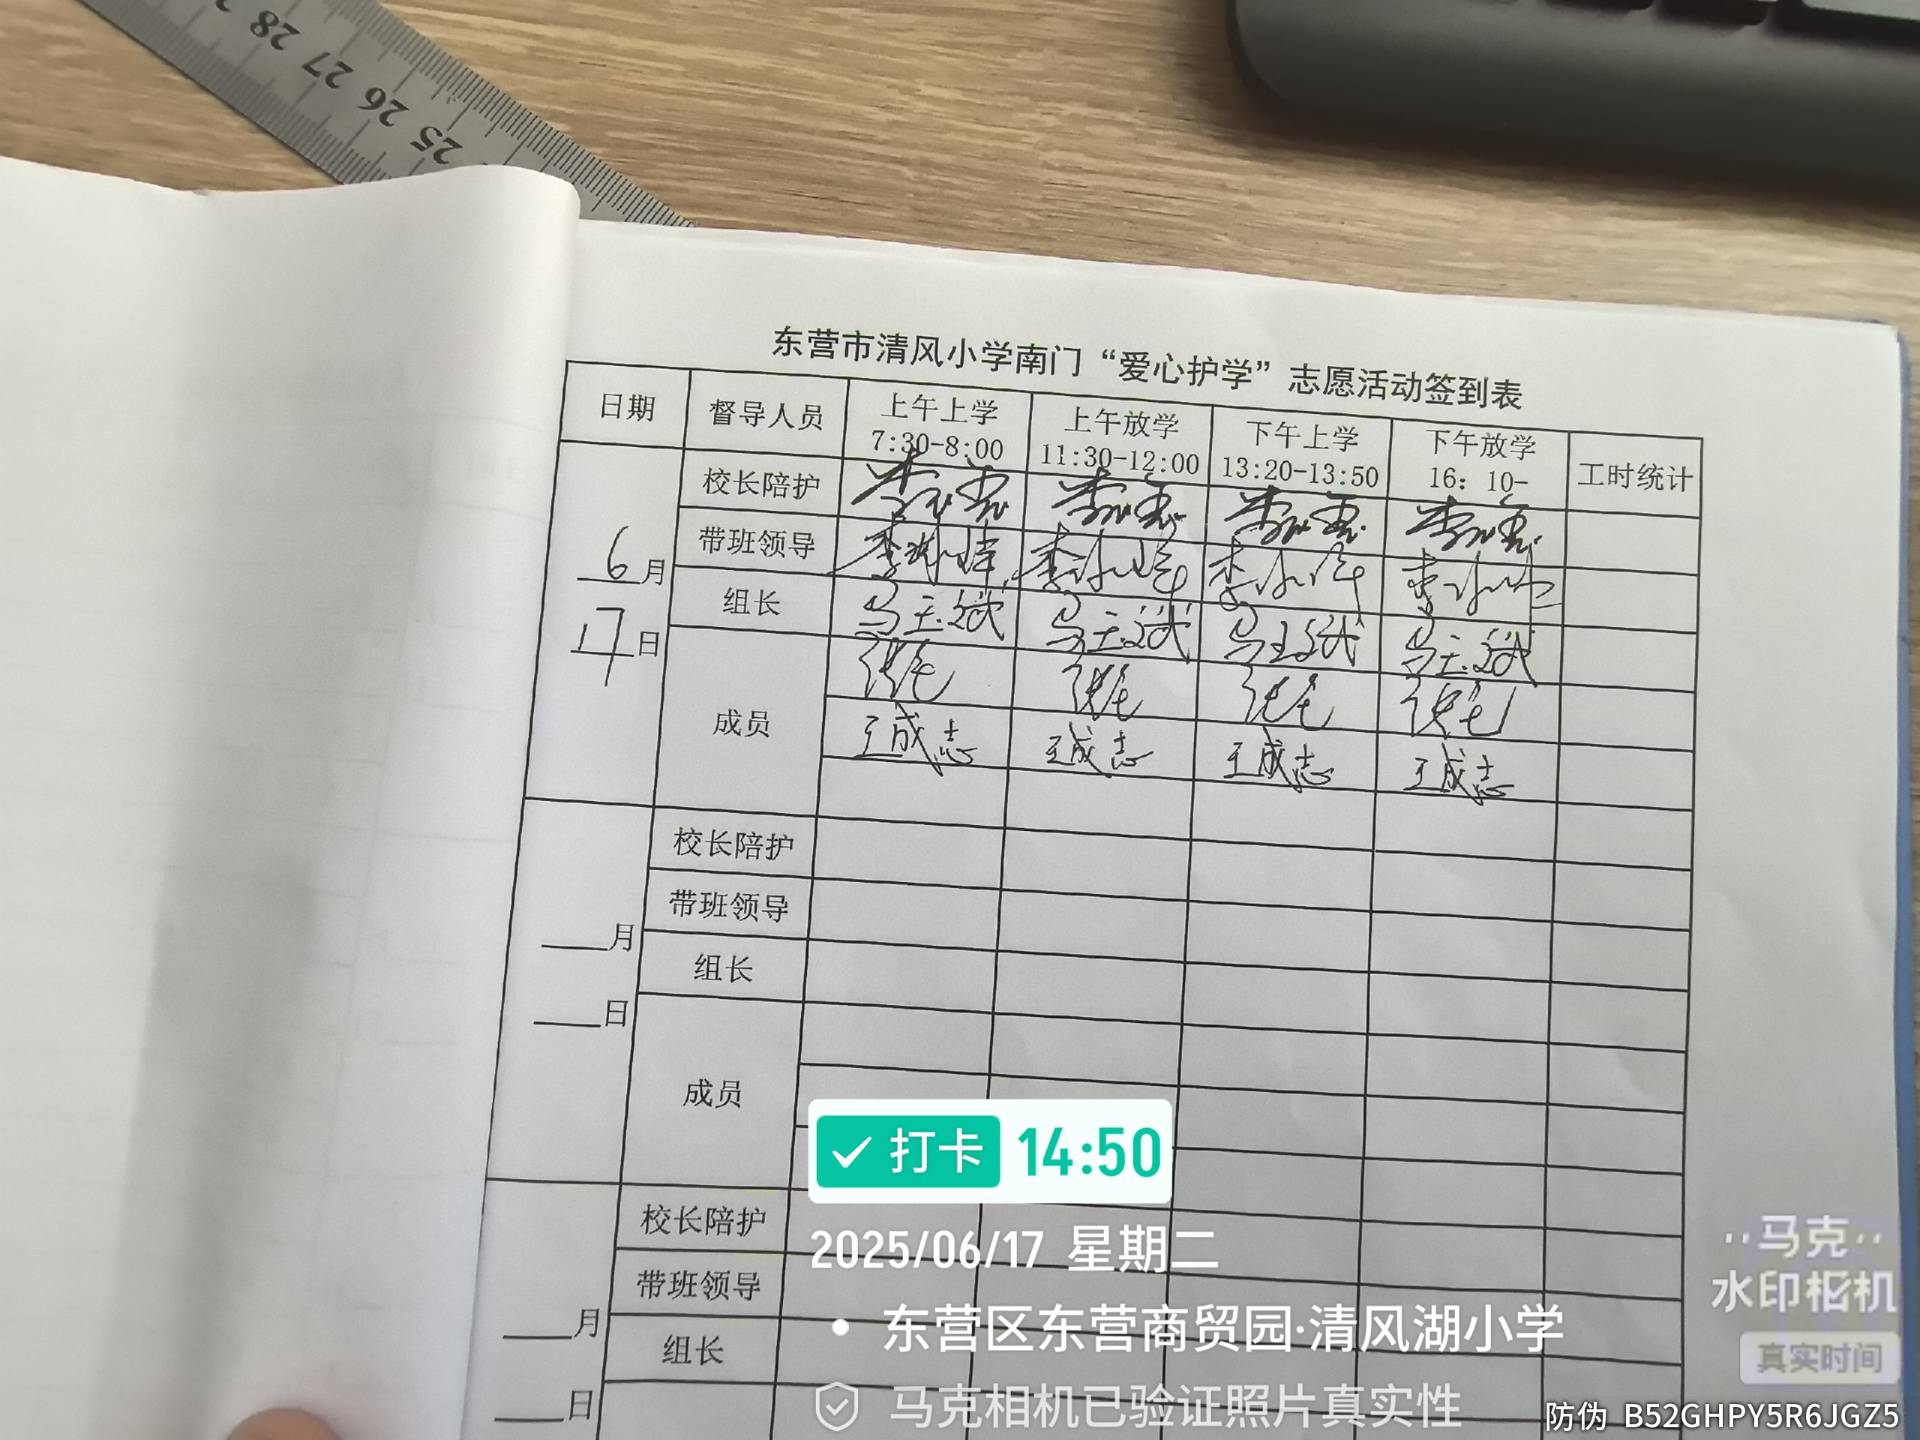 28 27 26 25
东营市清风小学南门“爱心护学”志愿活动签到表
日期 督导人员 上午上学 7:30-8:00 上午放学 11:30-12:00 下午上学 13:20-13:50 下午放学 16：10- 工时统计
校长陪护
带班领导
6月
组长 马玉斌 马玉斌 马玉斌 马玉斌
17日
成员
王成志 王成志 王成志 王成志
校长陪护
带班领导
月
组长
日
成员
校长陪护
带班领导
月
组长
日
打卡 14:50
2025/06/17 星期二
东营区东营商贸园·清风湖小学
马克相机已验证照片真实性
马克
水印相机
真实时间
防伪 B52GHPY5R6JGZ5